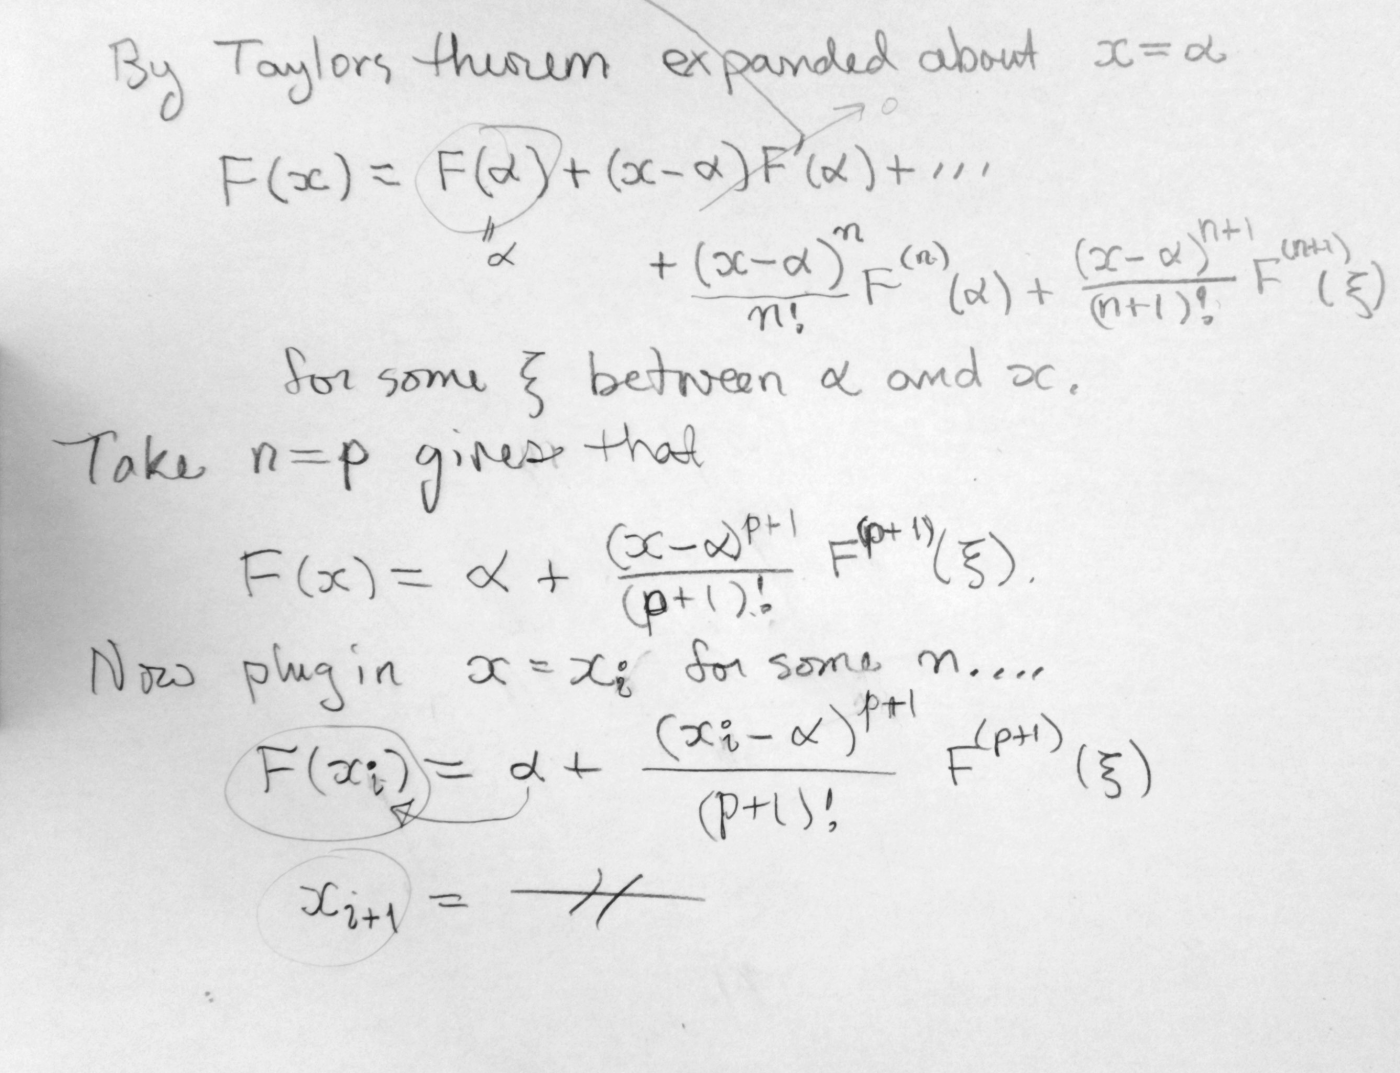 By Taylors theorem expanded about x=α
0
F(x) = F(α) + (x-α)F'(α) + ...
"
α
+ (x-α)^n/n! F^(n)(α) + (x-α)^(n+1)/(n+1)! F^(n+1)(ξ)
for some ξ between α and x.
Take n=p gives that
F(x) = α + (x-α)^(p+1)/(p+1)! F^(p+1)(ξ).
Now plug in x = x_i for some n....
F(x_i) = α + (x_i-α)^(p+1)/(p+1)! F^(p+1)(ξ)
x_(i+1) = —//—